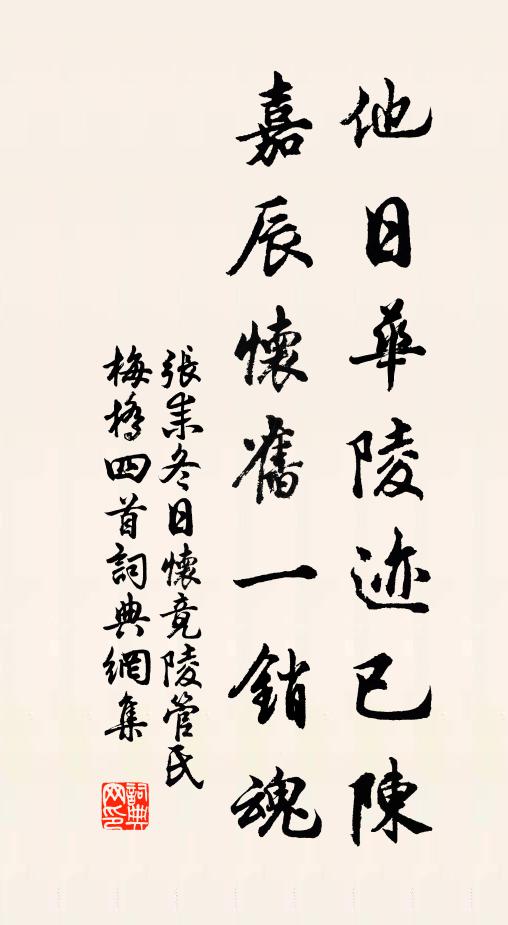 他日華陵迹已陳
嘉辰懷舊一銷魂
張耒冬日懷竟陵管氏
梅橋四首詞典網集
詞典
网印